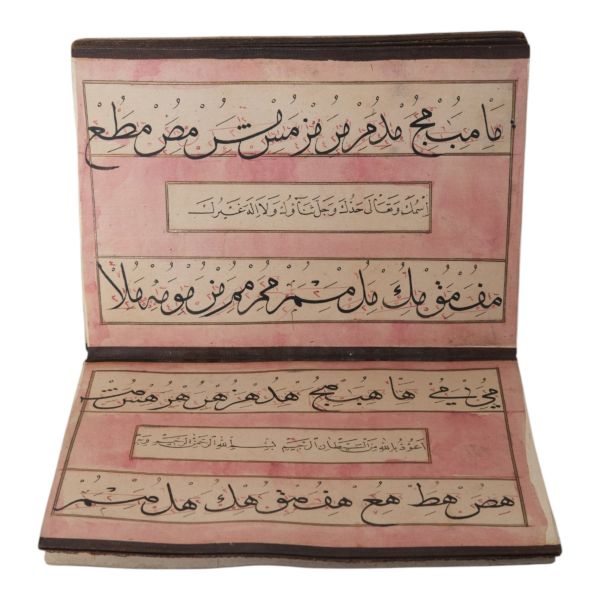 ما مب مج مد مر مر مس مص مط مع
اسمك وتعالى جدك وجل ثناؤك ولا اله غيرك
مف مق مك مل مم من مو مه ملا
مي مي ها هب هج هد هر هر هس
اعوذ بالله من الشيطان الرجيم بسم الله الرحمن الرحيم وبه
هص هط هع هف هق هك هل همم